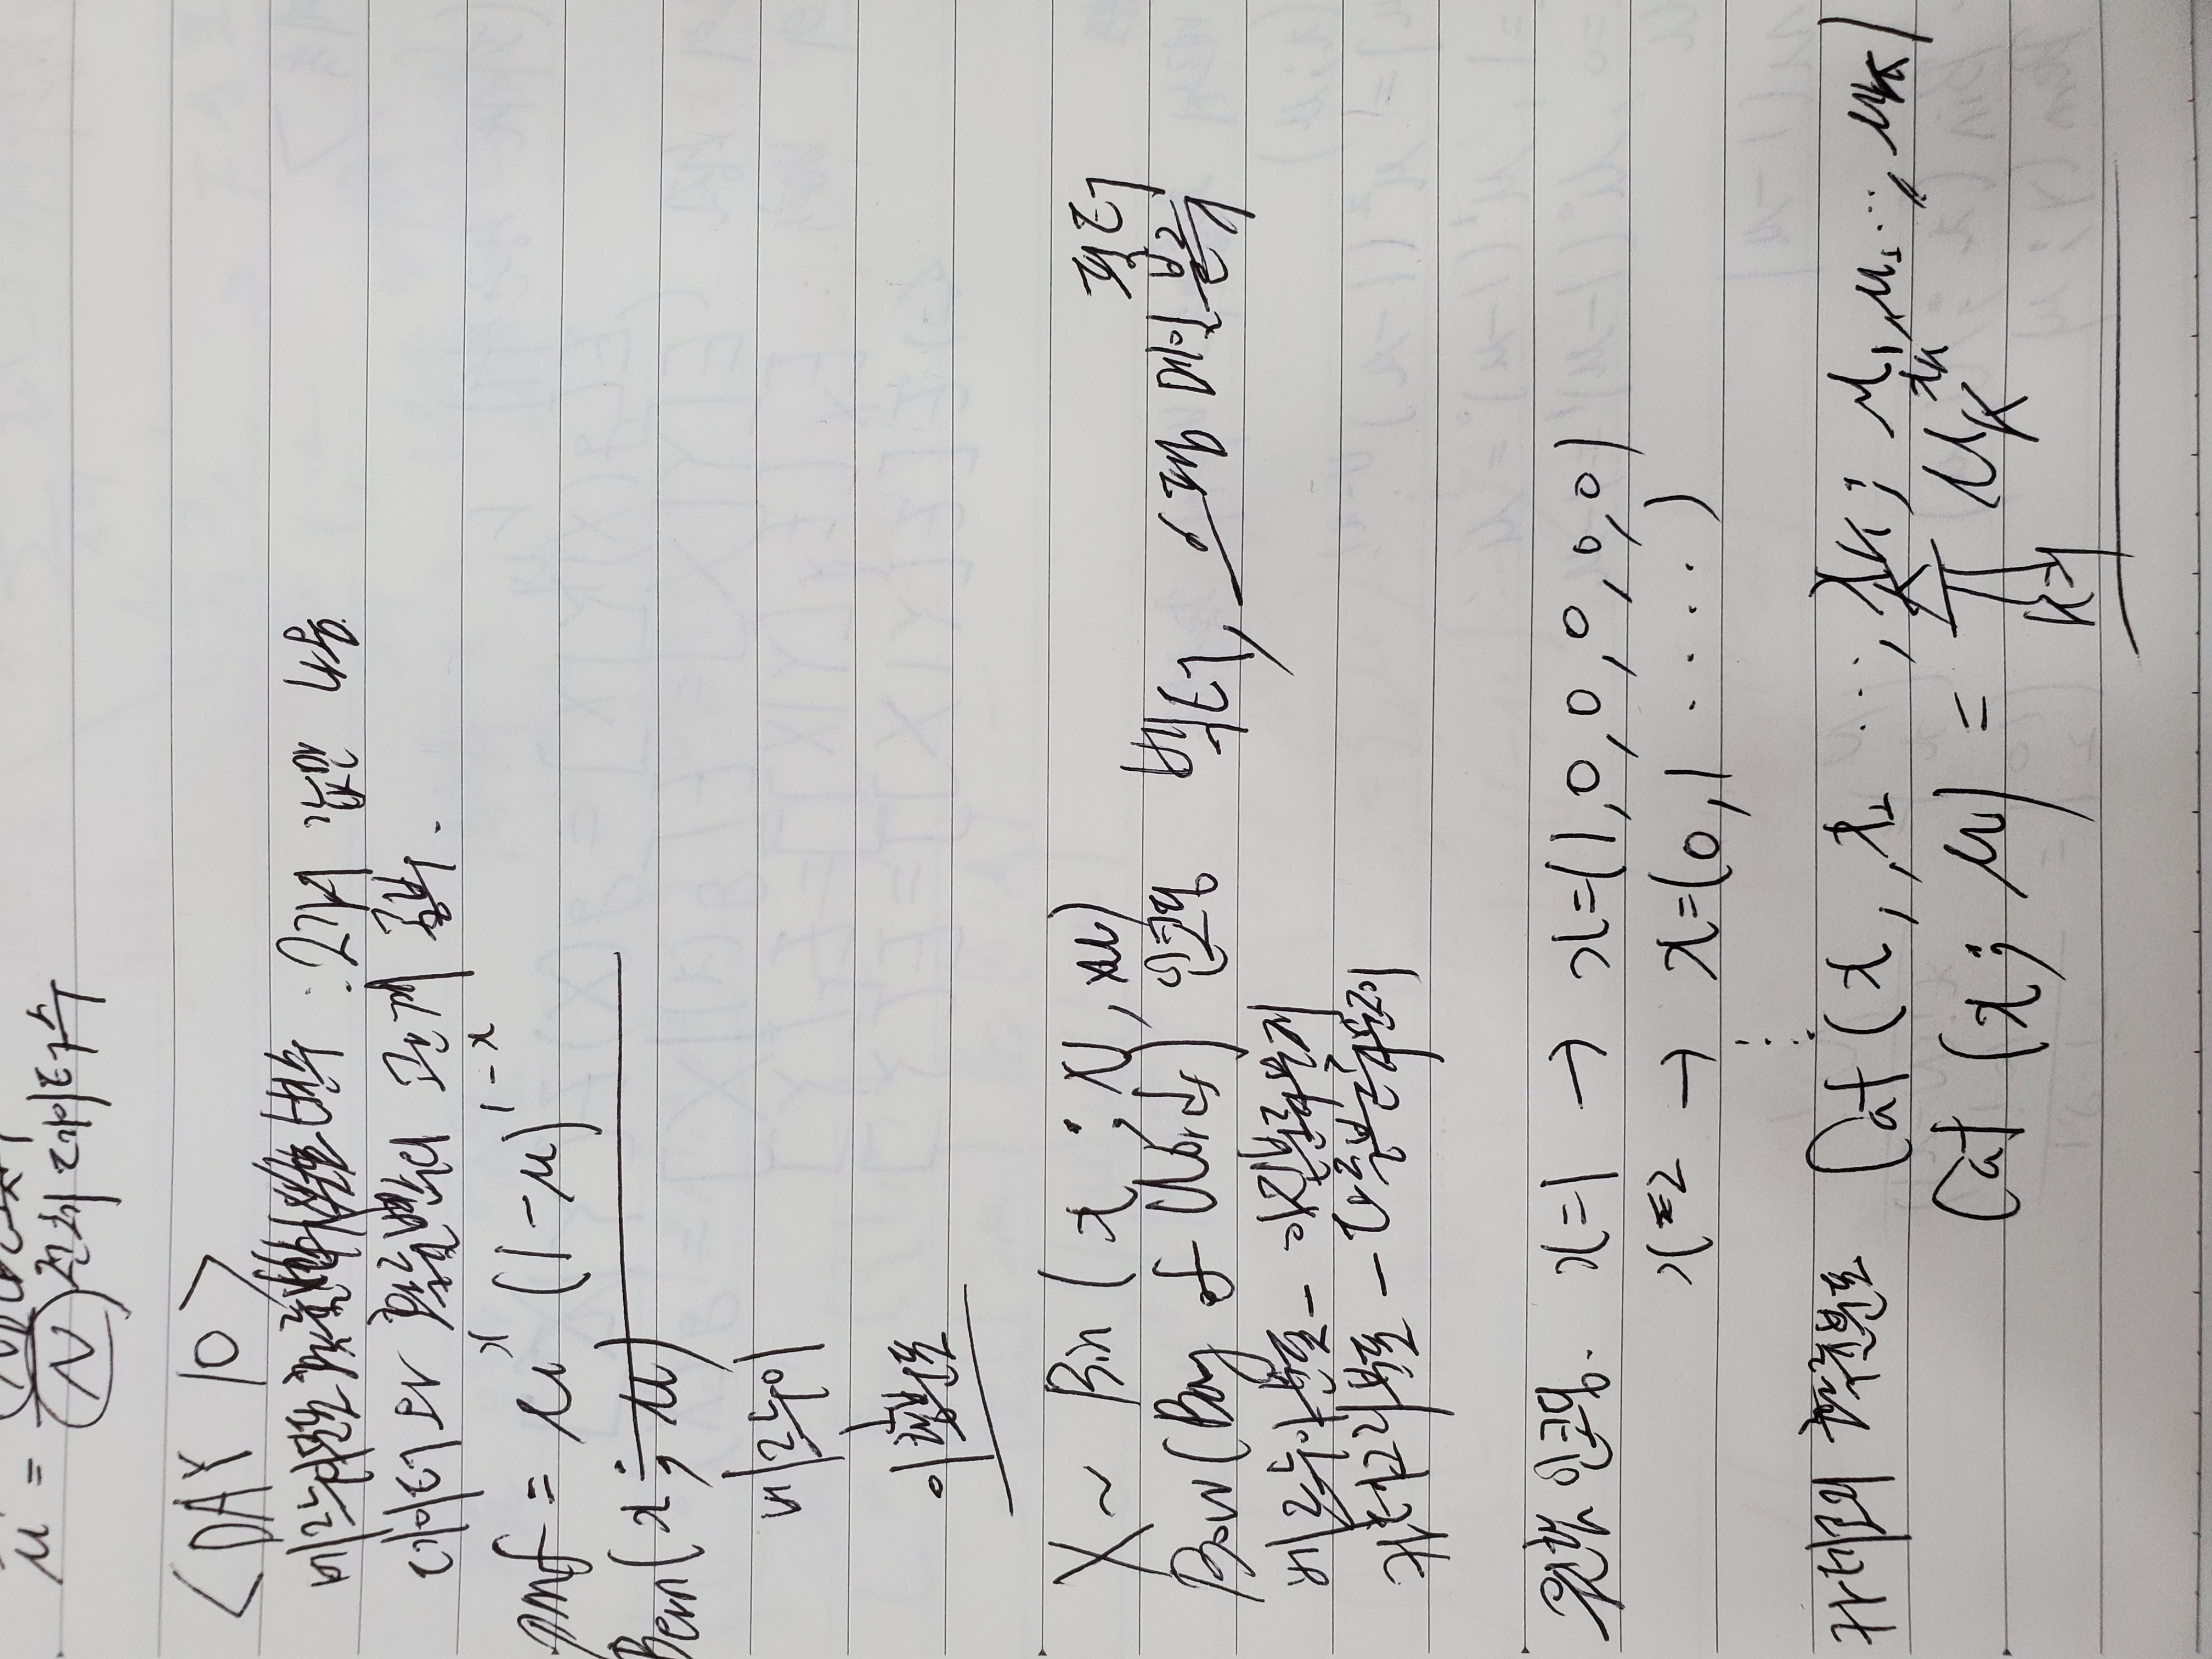 μ = N 전체 데이터수
<DAY 10>
베르누이분포 확률변수 : 2개 값만 나옴
데이터와 확률변수의 관계 공부.
pmf = μ^x (1-μ)^1-x
Bern(x ; μ)
베르누이
↓
이항분포
X ~ Bin ( x ; N, μ)
필터
Bow(Bag of Words) 인코딩 벡터, 스팸 메일 분류
베르누이분포 - 이진분류문제
카테고리분포 - 다중분류문제
원핫 인코딩. x=1 → x=(1,0,0,0,0,0)
x=2 → x=(0,1 ·····)
⋮
카테고리 확률분포 Cat (x, , x₂ ···, xK ; μ₁, μ₂ ···, μK)
Cat (x; μ) = ∏ K k=1 μK^xk